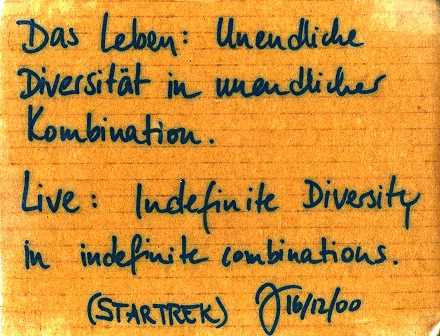 Das Leben: Unendliche
Diversität in unendlicher
Kombination.
Live: Indefinite Diversity
in indefinite combinations.
(STARTREK) 16/12/00